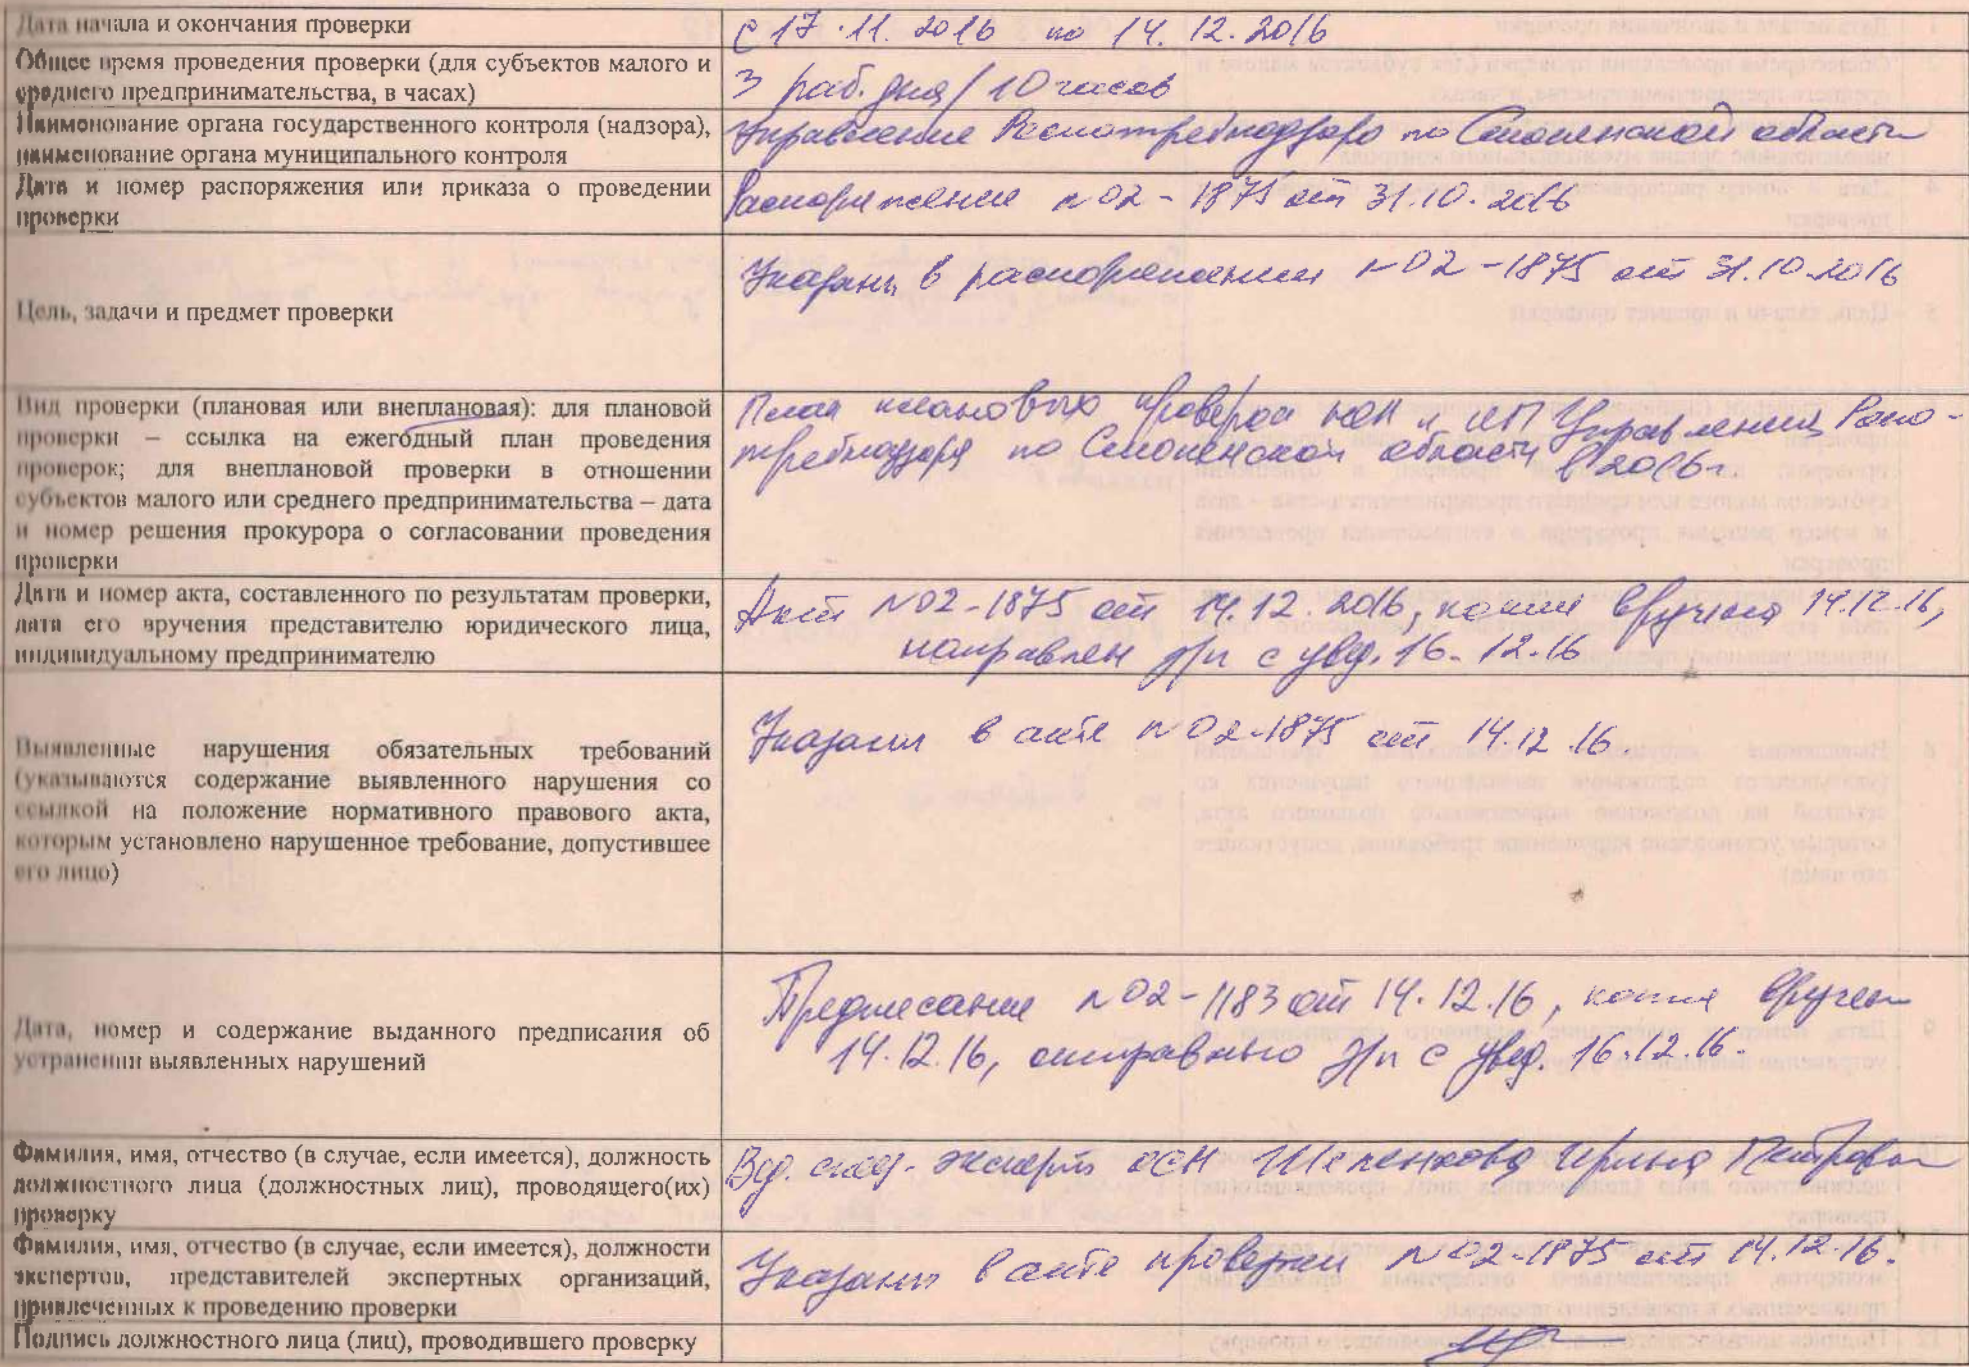 Дата начала и окончания проверки
с 17.11.2016 по 14.12.2016
Общее время проведения проверки (для субъектов малого и
среднего предпринимательства, в часах)
3 раб. дня / 10 часов
Наименование органа государственного контроля (надзора),
наименование органа муниципального контроля
Управление Роспотребнадзора по Смоленской области
Дата и номер распоряжения или приказа о проведении
проверки
Распоряжение №02-1875 от 31.10.2016
Цель, задачи и предмет проверки
Указаны в распоряжении №02-1875 от 31.10.2016
Вид проверки (плановая или внеплановая): для плановой
проверки – ссылка на ежегодный план проведения
проверок; для внеплановой проверки в отношении
субъектов малого или среднего предпринимательства – дата
и номер решения прокурора о согласовании проведения
проверки
План плановых проверок и ИП Управления Роспо-
требнадзора по Смоленской области в 2016г
Дата и номер акта, составленного по результатам проверки,
дата его вручения представителю юридического лица,
индивидуальному предпринимателю
Акт №02-1875 от 14.12.2016, копия вручена 14.12.16,
направлен з/п с увед. 16.12.16
Выявленные нарушения обязательных требований
(указываются содержание выявленного нарушения со
ссылкой на положение нормативного правового акта,
которым установлено нарушенное требование, допустившее
его лицо)
Указаны в акте №02-1875 от 14.12.16
Дата, номер и содержание выданного предписания об
устранении выявленных нарушений
Предписание №02-1183 от 14.12.16, копия вручен
14.12.16, отправлено з/п с увед. 16.12.16.
Фамилия, имя, отчество (в случае, если имеется), должность
должностного лица (должностных лиц), проводящего(их)
проверку
Вед. спец.-эксперт ОСН Ирина Петровна
Фамилия, имя, отчество (в случае, если имеется), должности
экспертов, представителей экспертных организаций,
привлеченных к проведению проверки
Указаны в акте проверки №02-1875 от 14.12.16.
Подпись должностного лица (лиц), проводившего проверку